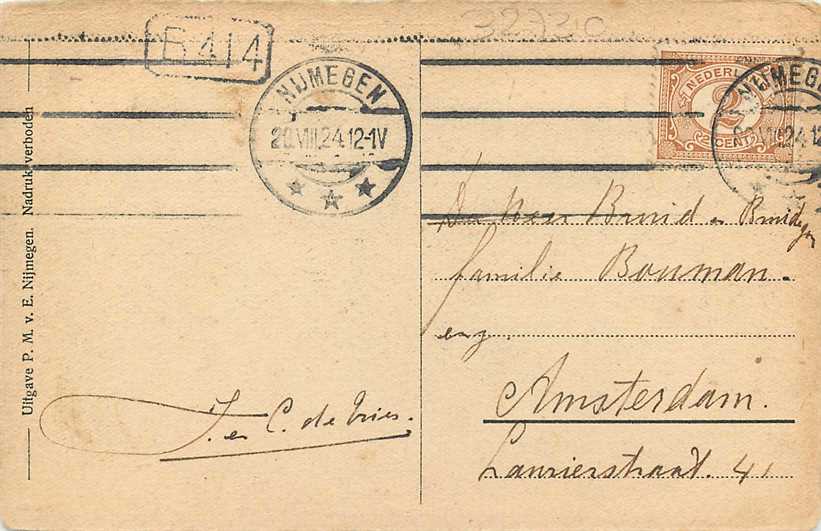 32730
B414
NIJMEGEN
20.VIII.24.12-1V
NEDERLAND
2
CENT
NIJMEGEN
VIII.24 12
Bruid en Bruidegom
familie Bouman.
enz.
Amsterdam.
Laurierstraat. 41
J. en C. de Vries.
Uitgave P. M. v. E. Nijmegen. Nadruk verboden